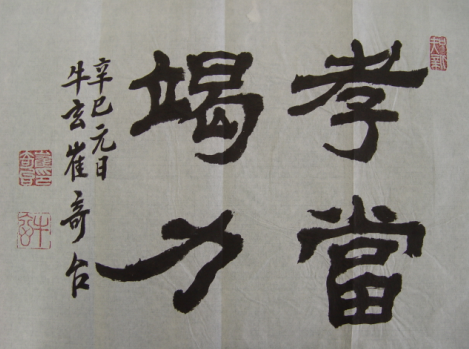 孝當
竭力
辛巳元日
牛玄崔奇台